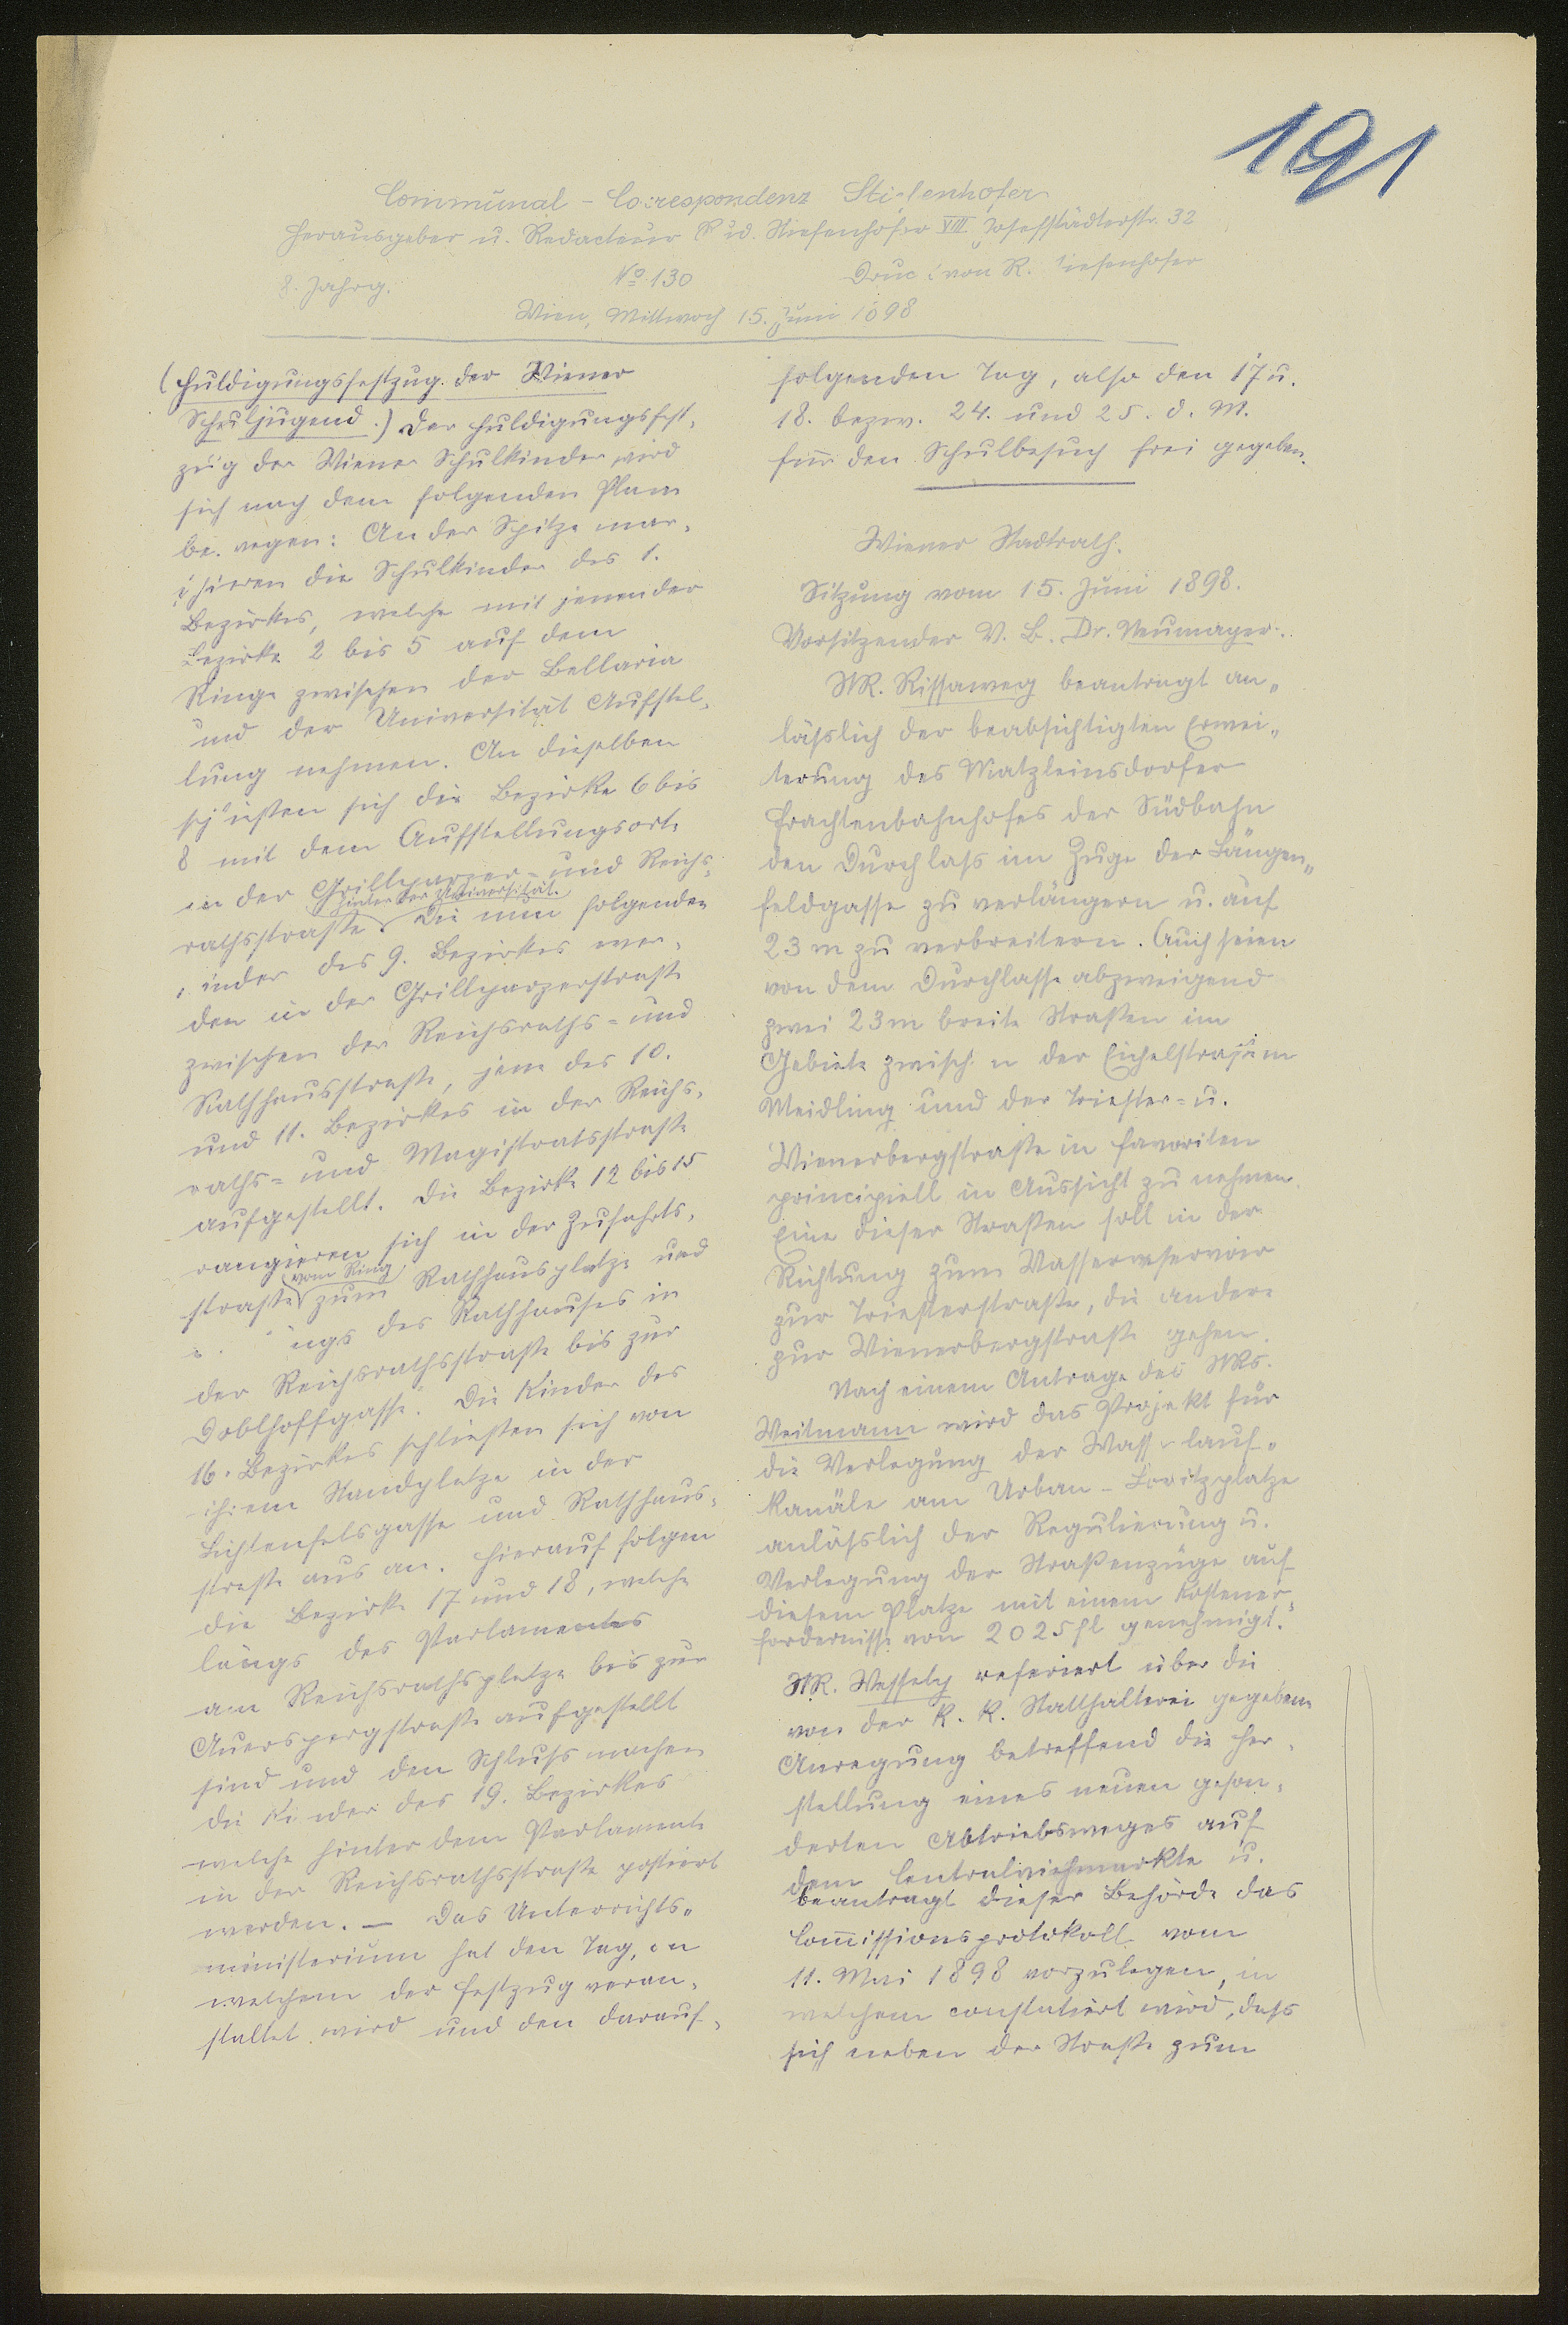 191
Communal-Correspondenz Stiefenhofer
Herausgeber u. Redacteur Rud. Stiefenhofer VIII Josefstädterstr. 32
8. Jahrg. No 130 Druck von R. Stiefenhofer
Wien, Mittwoch 15. Juni 1898
(Huldigungsfestzug der Wiener
Schuljugend.) Der Huldigungsfest-
zug der Wiener Schulkinder wird
sich nach dem folgenden Plane
bewegen: An der Spitze mar-
schieren die Schulkinder des 1.
Bezirkes, welche mit jenen der
Bezirke 2 bis 5 auf dem
Ringe zwischen der Bellaria
und der Universität Aufstel-
lung nehmen. An dieselben
schließen sich die Bezirke 6 bis
8 mit dem Aufstellungsorte
in der Grillparzer- und Reichs-
hinter der Universität.
rathsstraße. Die nun folgenden
Kinder des 9. Bezirkes wer-
den in der Grillparzerstraße
zwischen der Reichsraths- und
Rathhausstraße, jene des 10.
und 11. Bezirkes in der Reichs-
raths- und Magistratsstraße
aufgestellt. Die Bezirke 12 bis 15
rangieren sich in der Zufahrts-
vom Ring
straße zum Rathhausplatze und
längs des Rathhauses in
der Reichsrathsstraße bis zur
Doblhoffgasse. Die Kinder des
16. Bezirkes schließen sich von
ihrem Standplatze in der
Lichtenfelsgasse und Rathhaus-
straße aus an. Hierauf folgen
die Bezirke 17 und 18, welche
längs des Parlamentes
am Reichsrathsplatze bis zur
Auerspergstraße aufgestellt
sind und den Schluß machen
die Kinder des 19. Bezirkes
welche hinter dem Parlamente
in der Reichsrathsstraße postiert
werden. — Das Unterrichts-
ministerium hat den Tag, an
welchem der Festzug veran-
staltet wird und den darauf-
folgenden Tag, also den 17 u.
18. bezw. 24. und 25. d. M.
für den Schulbesuch frei gegeben.
Wiener Stadtrath.
Sitzung vom 15. Juni 1898.
Vorsitzender V. B. Dr. Neumayer.
StR. Rissaweg beantragt an-
läßlich der beabsichtigten Erwei-
terung des Matzleinsdorfer
Frachtenbahnhofes der Südbahn
den Durchlaß im Zuge der Längen-
feldgasse zu verlängern u. auf
23 m zu verbreitern. Auch seien
von dem Durchlasse abzweigend
zwei 23 m breite Straßen im
Gebiete zwischen der Eichelstraße in
Meidling und der Triester- u.
Wienerbergstraße in Favoriten
principiell in Aussicht zu nehmen.
Eine dieser Straßen soll in der
Richtung zum Wasserreservoir
zur Triesterstraße, die andere
zur Wienerbergstraße gehen.
Nach einem Antrage des StRs.
Weitmann wird das Projekt für
die Verlegung der Wasserlauf-
kanäle am Urban-Loritzplatze
anläßlich der Regulierung u.
Verlegung der Straßenzüge auf
diesem Platze mit einem Kostener-
fordernisse von 2025 fl genehmigt.
StR. Wessely referiert über die
von der k. k. Statthalterei gegebene
Anregung betreffend die Her-
stellung eines neuen geson-
derten Abtriebsweges auf
dem Centralviehmarkte u.
beantragt dieser Behörde das
Commissionsprotokoll vom
11. Mai 1898 vorzulegen, in
welchem constatiert wird, daß
sich neben der Straße zum